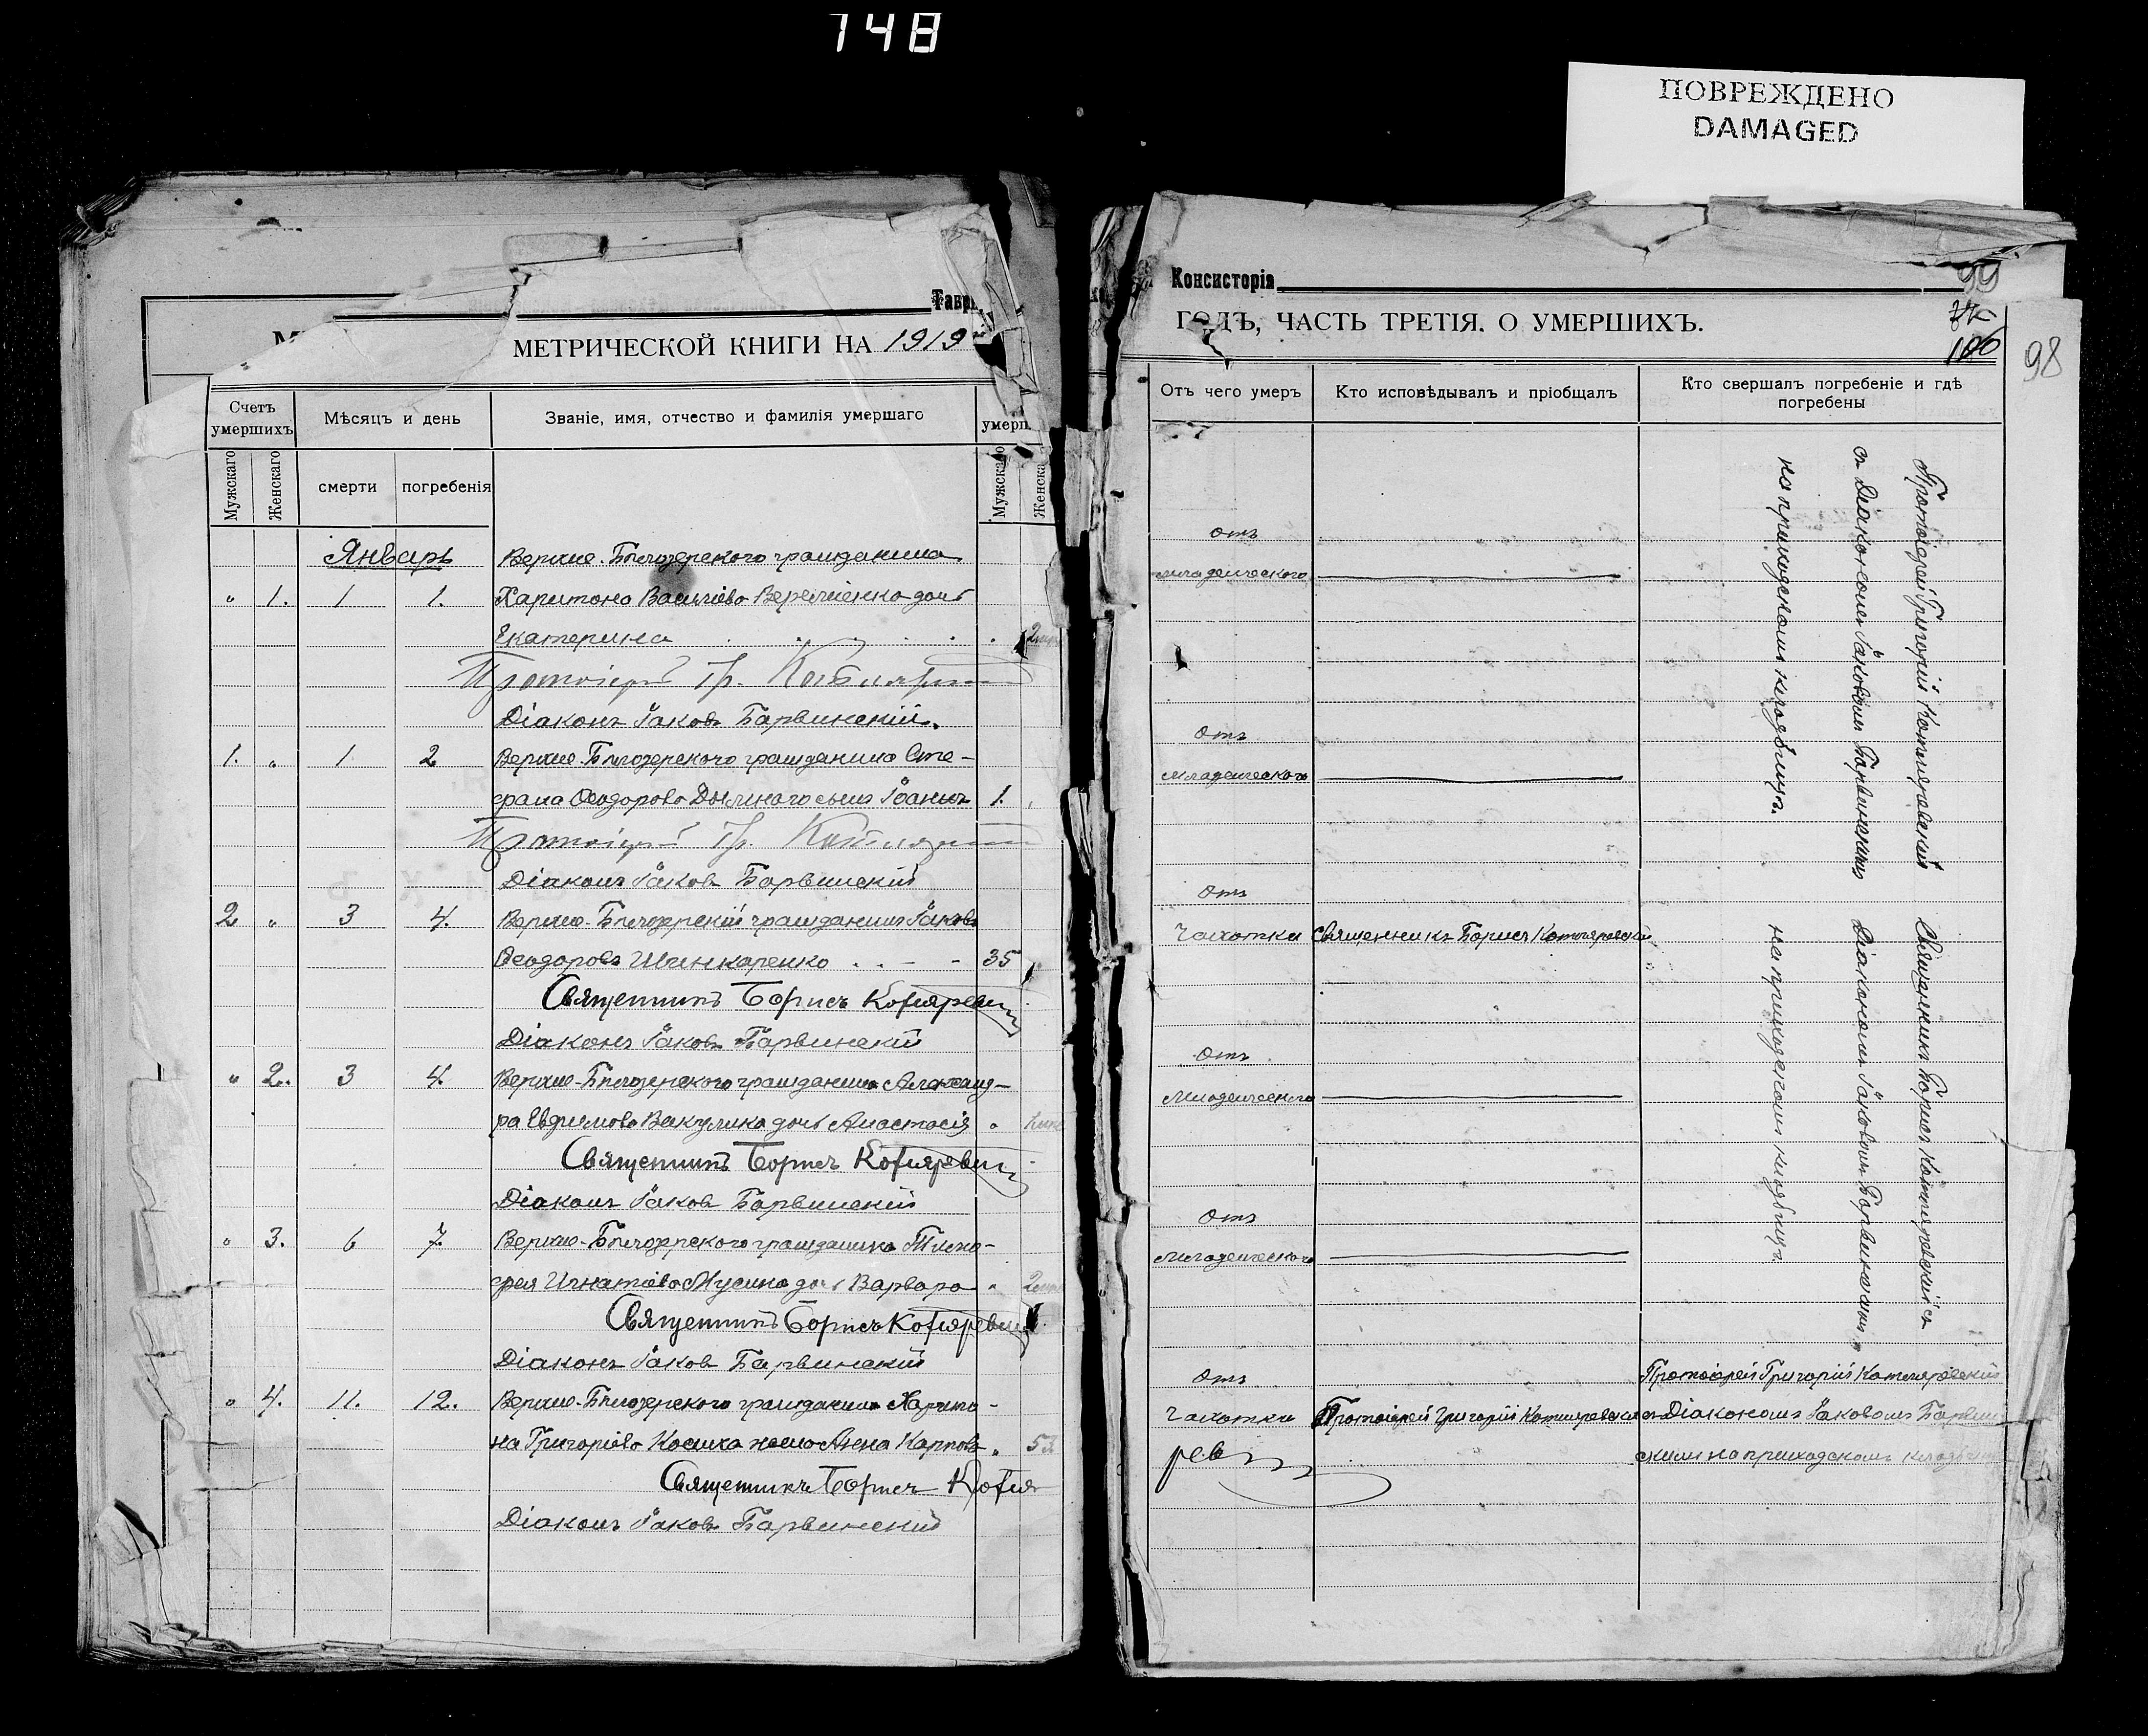 148
ПОВРЕЖДЕНО
DAMAGED
Таври
МЕТРИЧЕСКОЙ КНИГИ НА 1919
Счетъ умершихъ
Мѣсяцъ и день
Званіе, имя, отчество и фамилія умершаго
умерш
Мужскаго
Женскаго
смерти
погребенія
Мужскаго
Женска
Январь
Верхне-Бѣлозерского гражданина
" 1. 1 1. Харитона Васильева дочь
Екатерина
Протоіерей Гр. Котляревскій
Діаконъ Іаковъ Барвинскій.
1. " 1 2 Верхне-Бѣлозерского гражданина Сте-
фана Ѳеодорова сынъ Іоаннъ 1.
Протоіерей Гр. Котляревскій
Діаконъ Іаковъ Барвинскій
2 " 3 4. Верхне-Бѣлозерскій гражданинъ Іаковъ
Ѳеодоровъ Шинкаренко 35
Священникъ Борисъ Котляревскій
Діаконъ Іаковъ Барвинскій
" 2. 3 4. Верхне-Бѣлозерского гражданина Александ-
ра Евфимова Вакулика дочь Анастасія "
Священникъ Борисъ Котляревскій
Діаконъ Іаковъ Барвинскій
" 3. 6 7. Верхне-Бѣлозерского гражданина Тимо-
фея Игнатіева дочь Варвара "
Священникъ Борисъ Котляревскій
Діаконъ Іаковъ Барвинскій
" 4. 11. 12. Верхне-Бѣлозерского гражданина Харито-
на Григоріева жена Анна Карпова " 53
Священникъ Борисъ Котля
Діаконъ Іаковъ Барвинскій
Консисторія
99
106
98
ГОДЪ, ЧАСТЬ ТРЕТІЯ. О УМЕРШИХЪ.
Отъ чего умеръ
Кто исповѣдывалъ и пріобщалъ
Кто свершалъ погребеніе и гдѣ погребены
отъ
младенческого
Отъ
младенческого
Отъ
Чахотки Священникъ Борисъ Котляревскій
Отъ
Младенческого
Отъ
Младенческого
Отъ
Чахотки Протоіерей Григорій Котляревскій
рев
Протоіерей Григорій Котляревскій
съ Діакономъ Іаковомъ Барвинскимъ
на приходскомъ кладбищѣ.
Священникъ Борисъ Котляревскій съ
Діакономъ Іаковомъ Барвинскимъ
на приходскомъ кладбищѣ.
Протоіерей Григорій Котляревскій
съ Діакономъ Іаковомъ Барвин
скимъ на приходскомъ кладбищ